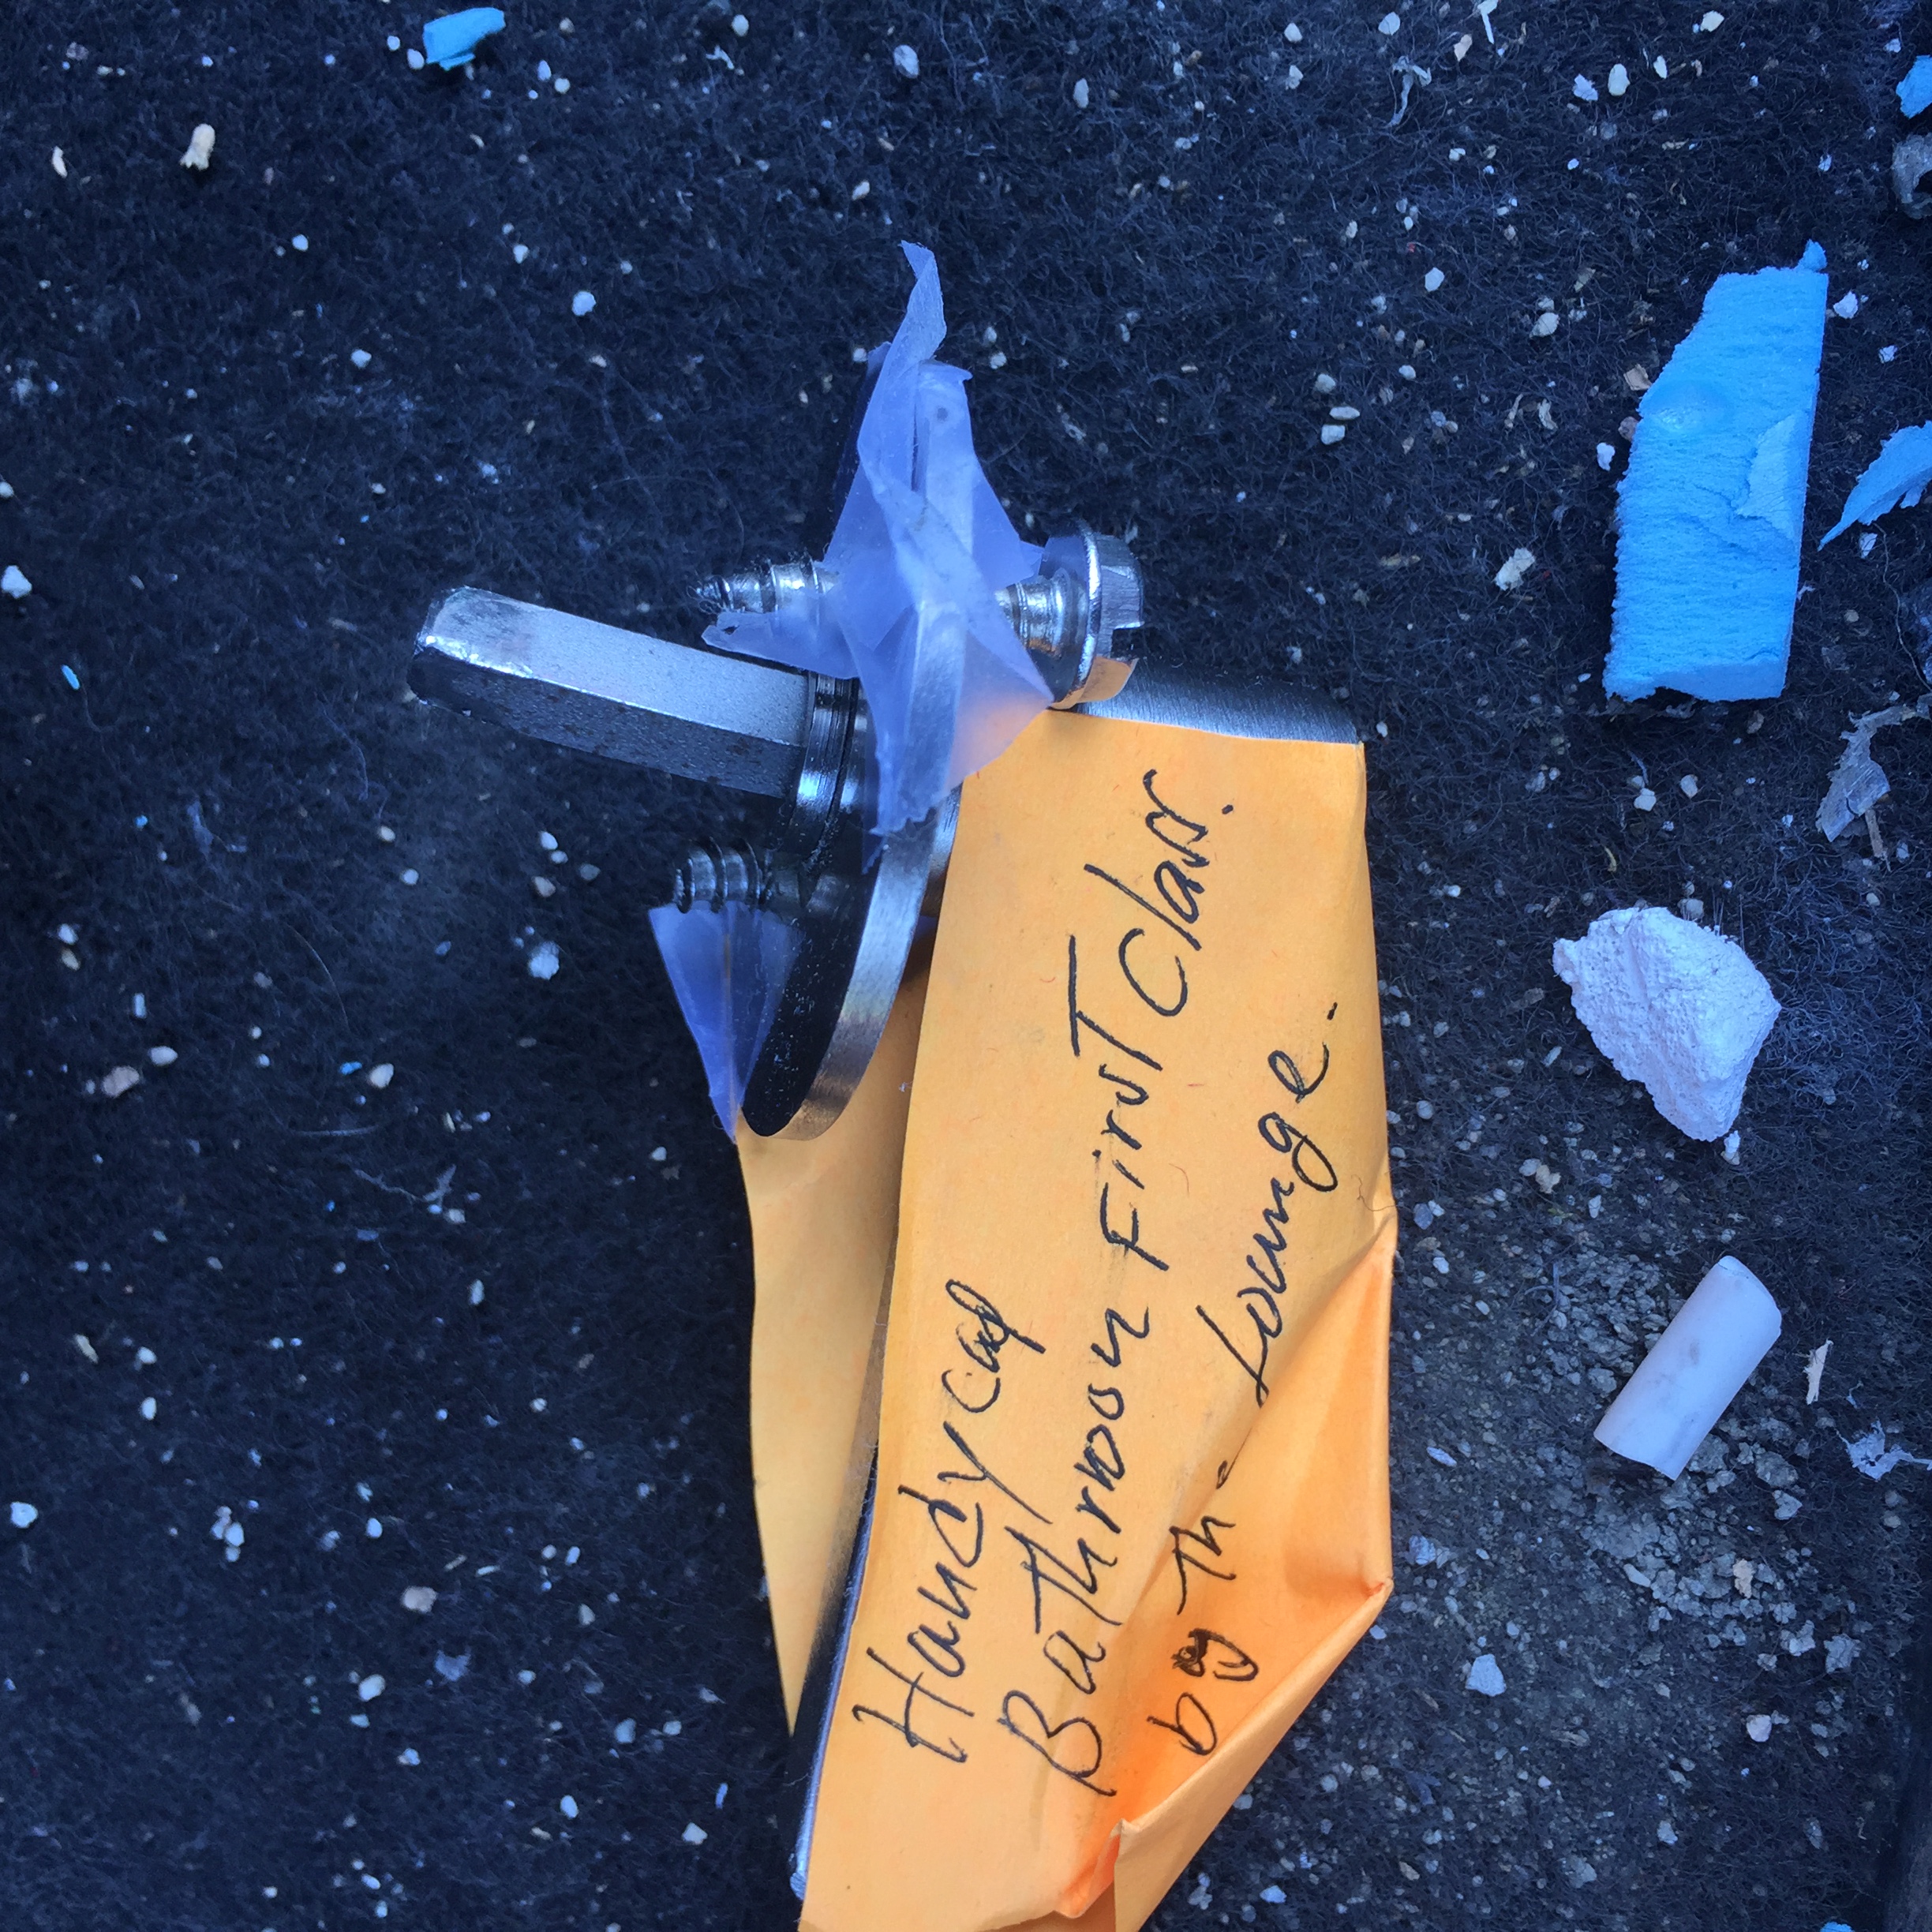 Handycap
Bathroom First Class.
by The Lounge.